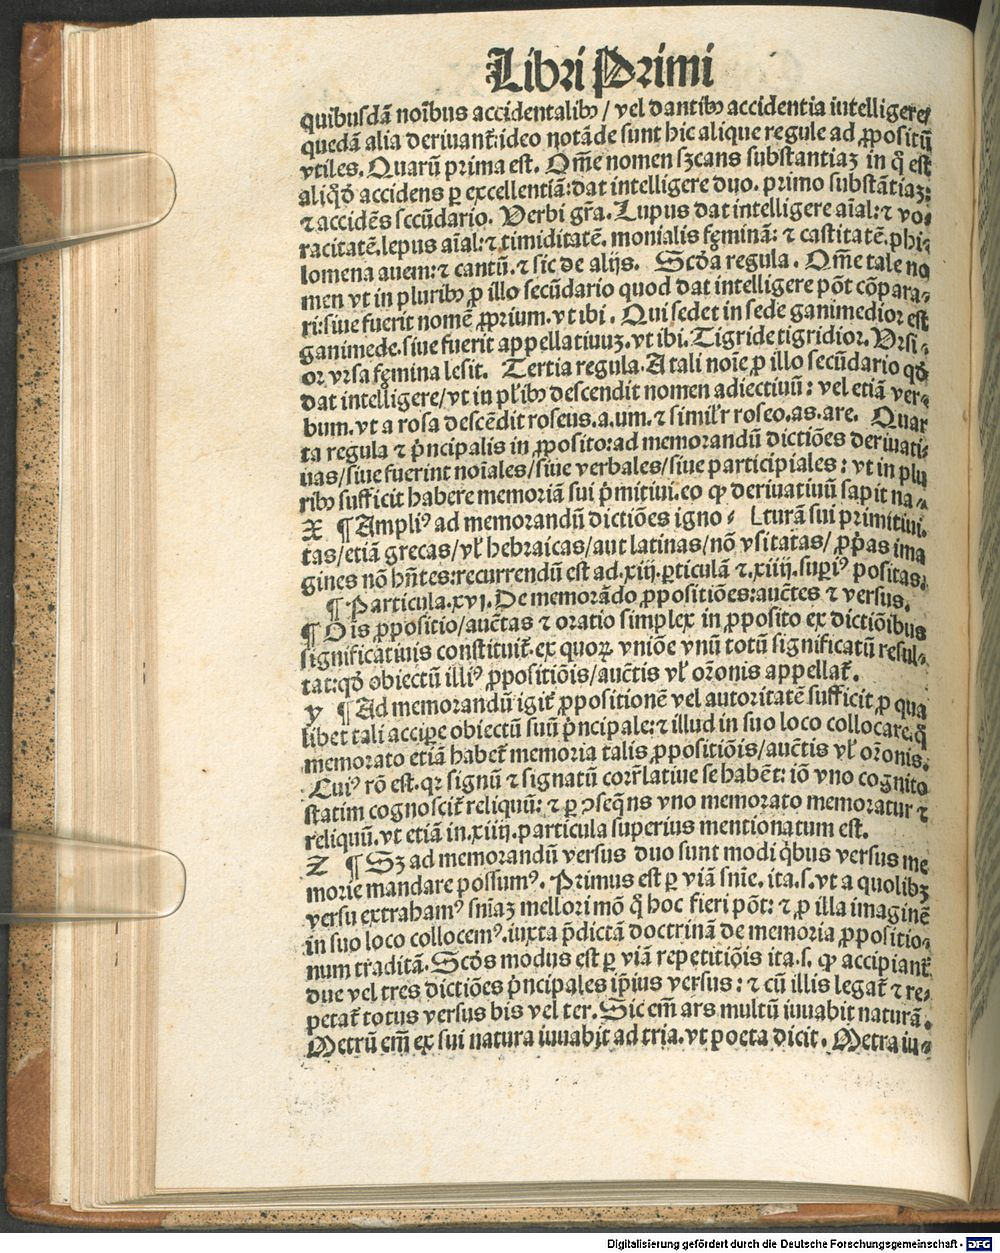 Libri Primi
quibusdã noîbus accidentalibꝰ / vel dantibꝰ accidentia intelligere/
quedã alia deriuant̃:ideo notãde sunt hic alique regule ad ꝓpositũ
vtiles. Quarũ prima est. Om̃e nomen sꝫcans substantiaꝫ in q̃ est
aliq̃ð accidens ꝑ excellentiã:dat intelligere duo. primo substãtiaꝫ:
⁊ accidẽs secũdario. Verbi gr̃a. Lupus dat intelligere aĩal:⁊ vo⸗
racitatẽ.lepus aĩal:⁊ timiditatẽ. monialis fęminã: ⁊ castitatẽ.phi⸗
lomena auem:⁊ cantũ.⁊ sic de alijs. Scða regula. Om̃e tale no
men vt in pluribꝰ ꝓ illo secũdario quod dat intelligere põt cõpara⸗
ri:siue fuerit nomẽ ꝓprium.vt ibi. Qui sedet in sede ganimedior est
ganimede.siue fuerit appellatiuuꝫ.vt ibi. Tigride tigridior. Vrsi⸗
or vrsa fęmina lesit. Tertia regula. A tali noĩe ꝓ illo secũdario qð
dat intelligere/vt in pl̃ibꝰ descendit nomen adiectiuũ: vel etiã ver⸗
bum.vt a rosa descẽdit roseus.a.um.⁊ simil̃r roseo.as.are. Quar
ta regula ⁊ p̃ncipalis in ꝓposito:ad memorandũ dictiões deriuati⸗
uas/siue fuerint noĩales/siue verbales/siue participiales: vt in plu
ribꝰ sufficit habere memoriã sui p̃mitiui.eo ꝙ deriuatiuũ sapit na⸗
X ¶Ampliꝰ ad memorandũ dictiões igno⸗ Lturã sui primitiui.
tas/etiã grecas/vl̃ hebraicas/aut latinas/nõ vsitatas/ ꝓp̃as ima
gines nõ hñtes:recurrendũ est ad.xiij.ꝑticulã ⁊.xiiij.supꝑiꝰ positas.
¶Particula.xvj. De memorãdo ꝓpositiões:auc̃tes ⁊ versus.
¶Ois ꝓpositio/auc̃tas ⁊ oratio simplex in ꝓposito ex dictiõibus
significatiuis constituit̃.ex quoꝝ vniõe vnũ totũ significatũ resul⸗
tat:qð obiectũ illiꝰ ꝓpositiõis/auc̃tis vl̃ or̃onis appellat̃.
y ¶Ad memorandũ igit̃ ꝓpositionẽ vel autoritatẽ sufficit ꝓ qua
libet tali accipe obiectũ suũ p̃ncipale:⁊ illud in suo loco collocare.q̃
memorato etiã habet̃ memoria talis ꝓpositiõis/auc̃tis vl̃ or̃onis.
Cuiꝰ rõ est.qꝛ signũ ⁊ signatũ corr̃latiue se habẽt: iõ vno cognito
statim cognoscit̃ reliquũ: ⁊ ꝑ ꝯseq̃ns vno memorato memoratur ⁊
reliquũ.vt etiã in.xiiij.particula superius mentionatum est.
Z ¶Sꝫ ad memorandũ versus duo sunt modi q̃bus versus me
morie mandare possumꝰ. Primus est ꝑ viã snĩe. ita.s.vt a quolibꝫ
versu extrahamꝰ snĩaꝫ meliori mõ q̃ hoc fieri põt: ⁊ ꝓ illa imaginẽ
in suo loco collocemꝰ.iuxta p̃dictã doctrinã de memoria ꝓpositio⸗
num traditã. Scðs modus est ꝑ viã repetitiõis ita.s. ꝙ accipiant̃
due vel tres dictiões p̃ncipales ip̃ius versus: ⁊ cũ illis legat̃ ⁊ re⸗
petat̃ totus versus bis vel ter. Sic em̃ ars multũ iuuabit naturã.
Metrũ em̃ ex sui natura iuuabit ad tria.vt poeta dicit. Metra iu⸗
Digitalisierung gefördert durch die Deutsche Forschungsgemeinschaft - DFG